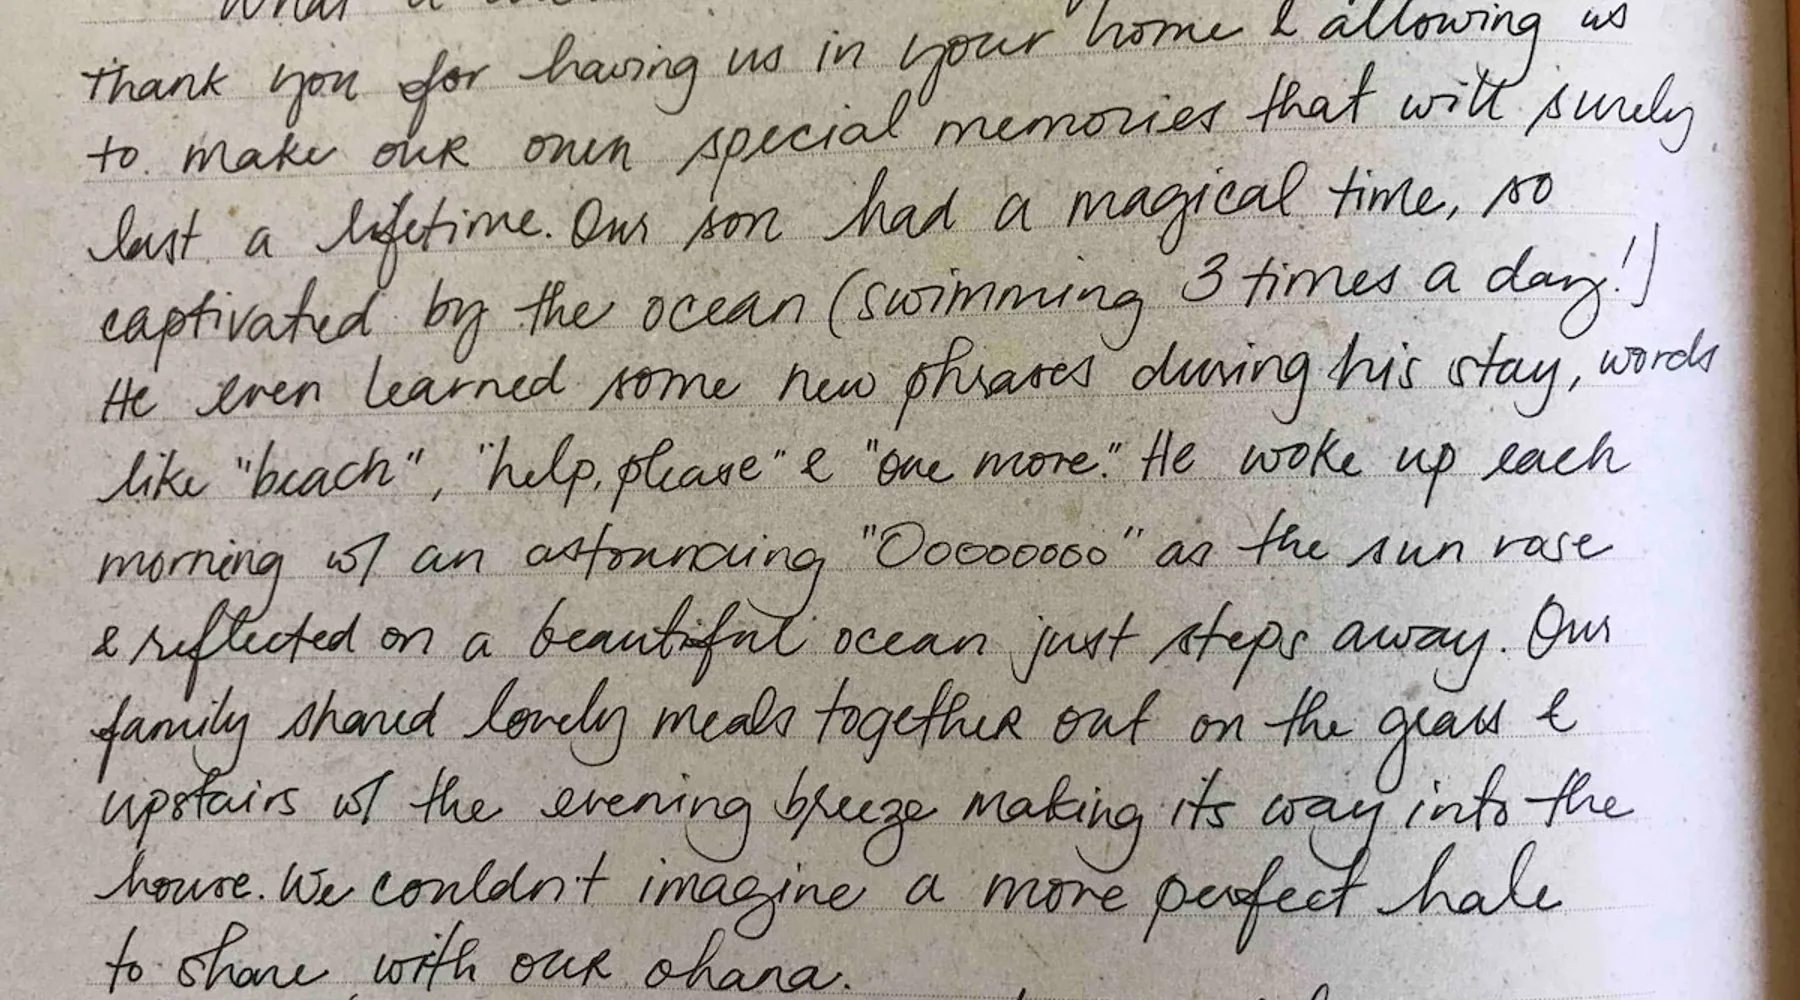 What a
thank you for having us in your home & allowing us
to make our own special memories that will surely
last a lifetime. Our son had a magical time, so
captivated by the ocean (swimming 3 times a day!)
He even learned some new phrases during his stay, words
like "beach", "help, please" & "one more." He woke up each
morning w/ an astounding "Ooooooooo" as the sun rose
& reflected on a beautiful ocean just steps away. Our
family shared lovely meals together out on the grass &
upstairs w/ the evening breeze making its way into the
house. We couldn't imagine a more perfect hale
to share with our ohana.